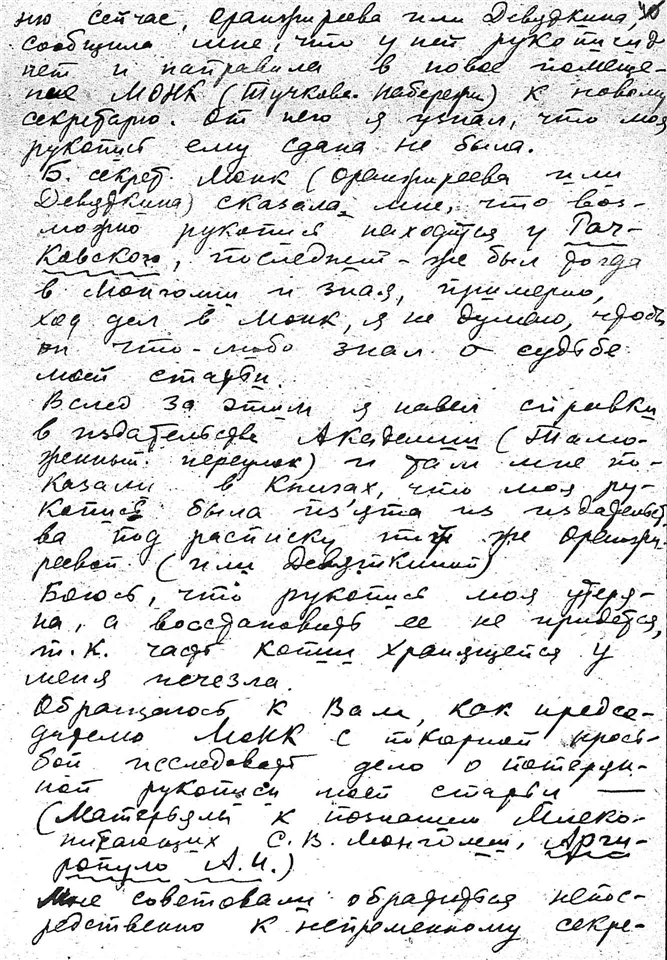 ню сейчас, Оранжиреева или Девяткина,
сообщила мне, что у ней рукописи
нет и направила в новое помеще-
ние МОНК (Тучкова набереж.) к новому
секретарю. От него я узнал, что моя
рукопись ему сдана не была.
Б. секрет. Монк (Оранжиреева или
Девяткина) сказала мне, что воз-
можно рукопись находится у Тач-
ковского, последний-же был тогда
в Монголии и зная, примерно,
ход дел в Монк, я не думаю, чтобы
он что-либо знал о судьбе
моей статьи.
Вслед за этим я навел справки
в издательстве Академии (Тамо-
женный переулок) и там мне по-
казали в книгах, что моя ру-
копись была из'ята из издательст
ва под расписку той же Оранжи-
реевой (или Девяткиной)
Боюсь, что рукопись моя утеря-
на, а восстановить ее не придется,
т.к. часть копии хранящейся у
меня исчезла.
Обращаюсь к Вам, как предсе-
дателю МОНК с покорной прось-
бой исследовать дело о потерян-
ной рукописи моей статьи —
(Матерьялы к познанию млеко-
питающих С.В. Монголии, Арги-
ропуло А.И.)
Мне советовали обратиться непос-
редственно к непременному секре-